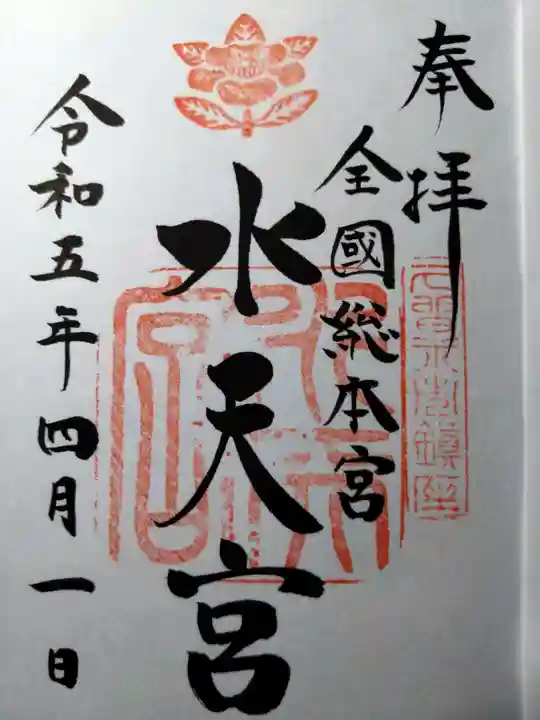 奉拝
全國総本宮
水天宮
令和五年四月一日